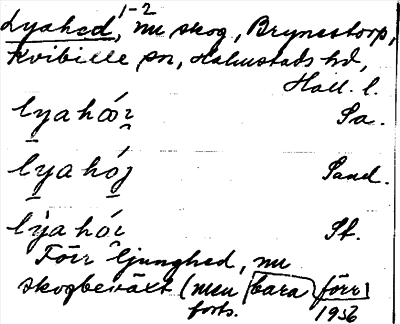 Lyahed, 1-2 nu skog, Brynestorp,
Kvibille sn, Halmstads hd,
Hall. l.
lyahór Sa.
lyahój Sand.
lyahór St.
Förr ljunghed, nu
skogbeväxt (men bara förr)
forts. 1956